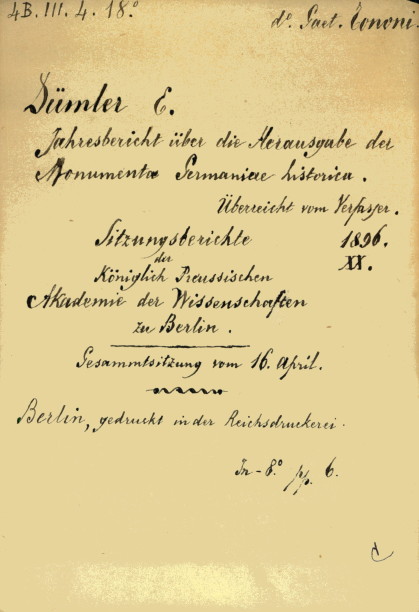 4B. III. 4. 18.°
d.° Gaet. Tononi.
Dümler E.
Jahresbericht über die Herausgabe der
Monumenta Germaniae historica.
Überreicht vom Verfasser.
Sitzungsberichte 1896.
der XX.
Königlich Preussischen
Akademie der Wissenschaften
zu Berlin.
Gesammtsitzung vom 16. April.
Berlin, gedruckt in der Reichsdruckerei.
In-8.° pp. 6.